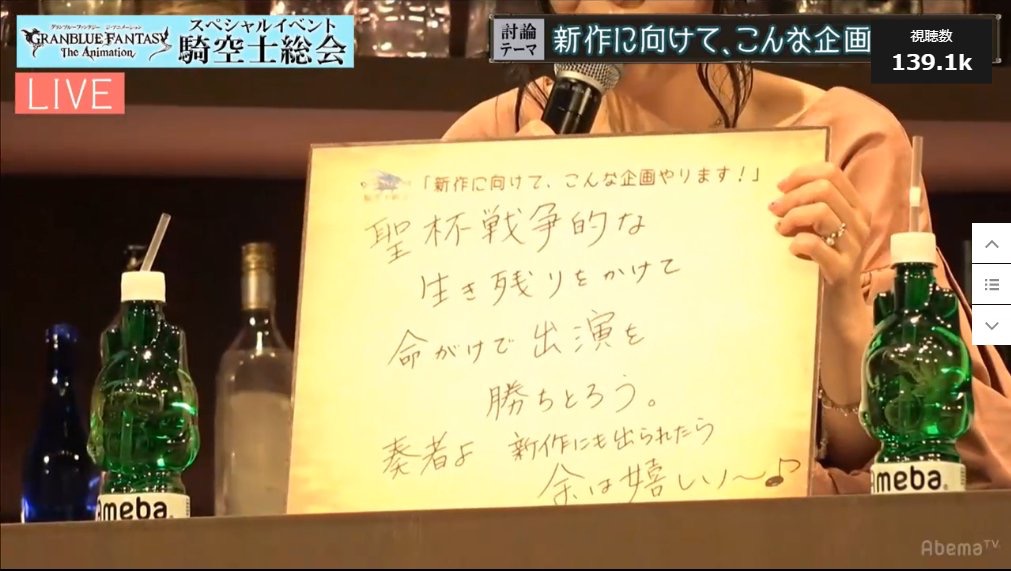 グランブルーファンタジー ジ・アニメーション
GRANBLUE FANTASY
The Animation
スペシャルイベント
騎空士総会
LIVE
討論
テーマ
新作に向けて、こんな企画
視聴数
139.1k
「新作に向けて、こんな企画やります!」
聖杯戦争的な
生き残りをかけて
命がけで出演を
勝ちとろう。
奏者よ 新作にも出られたら
余は嬉しいぞ〜♪
ameba
ameba
AbemaTV